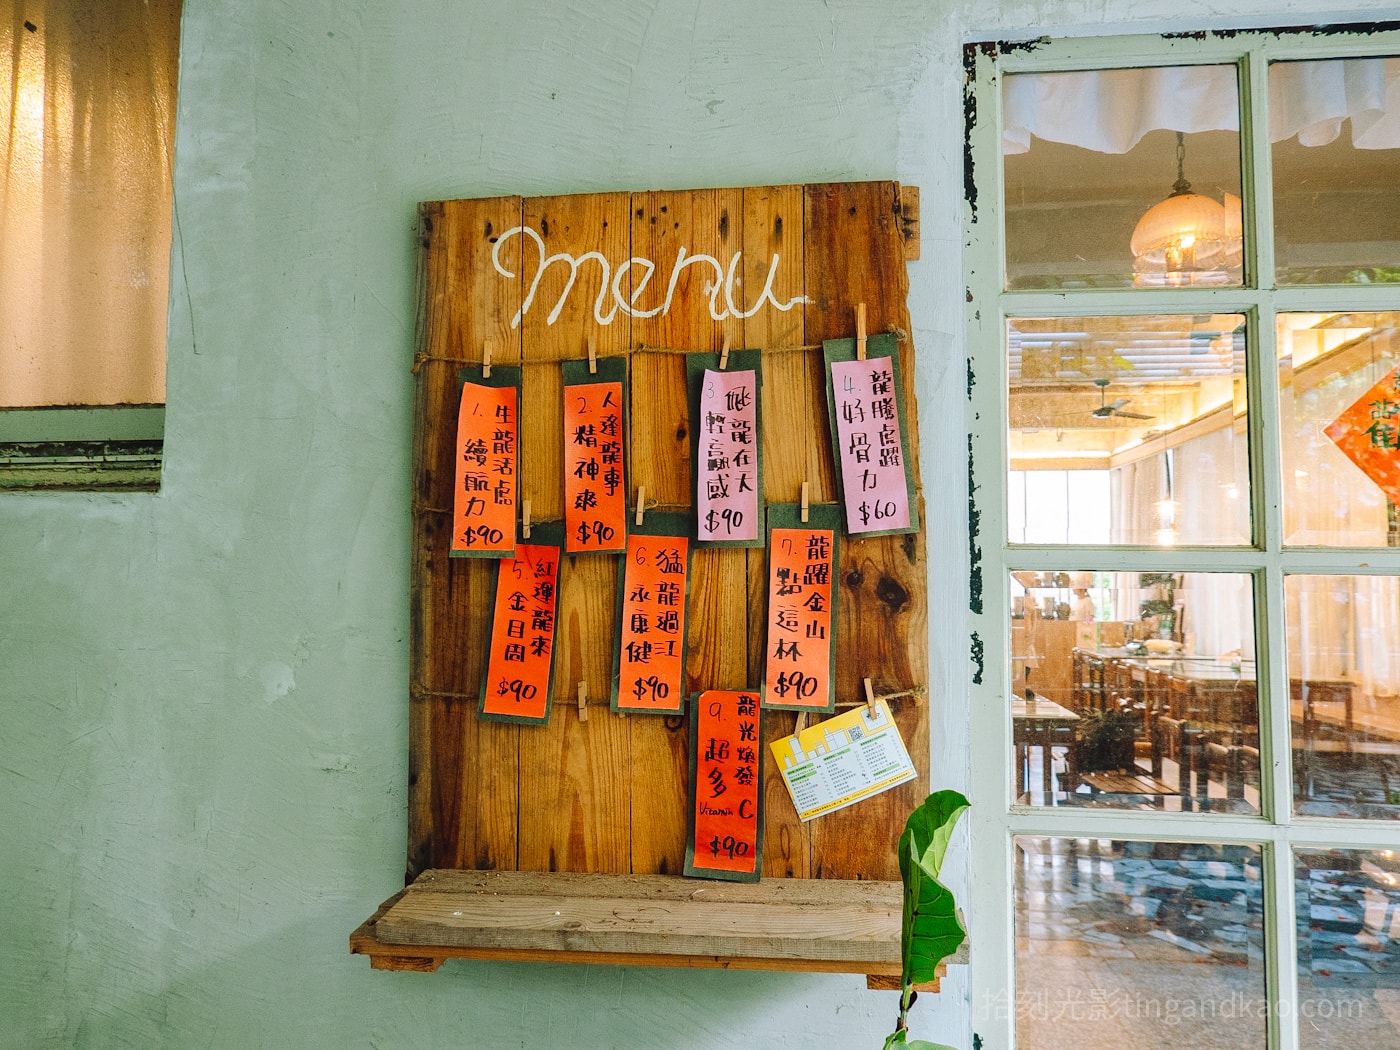 menu
1. 生龍活虎
續航力
$90
2. 人逢龍事
精神爽
$90
3. 飛龍在天
輕盈感
$90
4. 龍騰虎躍
好骨力
$60
5. 紅運龍來
金目周
$90
6. 猛龍過江
永康健
$90
7. 龍躍金山
點這杯
$90
9. 龍光煥發
超多
Vitamin C
$90
拾刻光影tingandkao.com